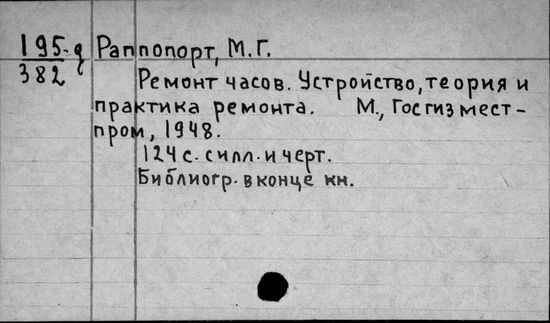 195-д Раппопорт, М.Г.
382
Ремонт часов. Устройство, теория и
практика ремонта. М., Госгизмест-
пром, 1948.
124 с. с илл. и черт.
Библиогр. в конце кн.